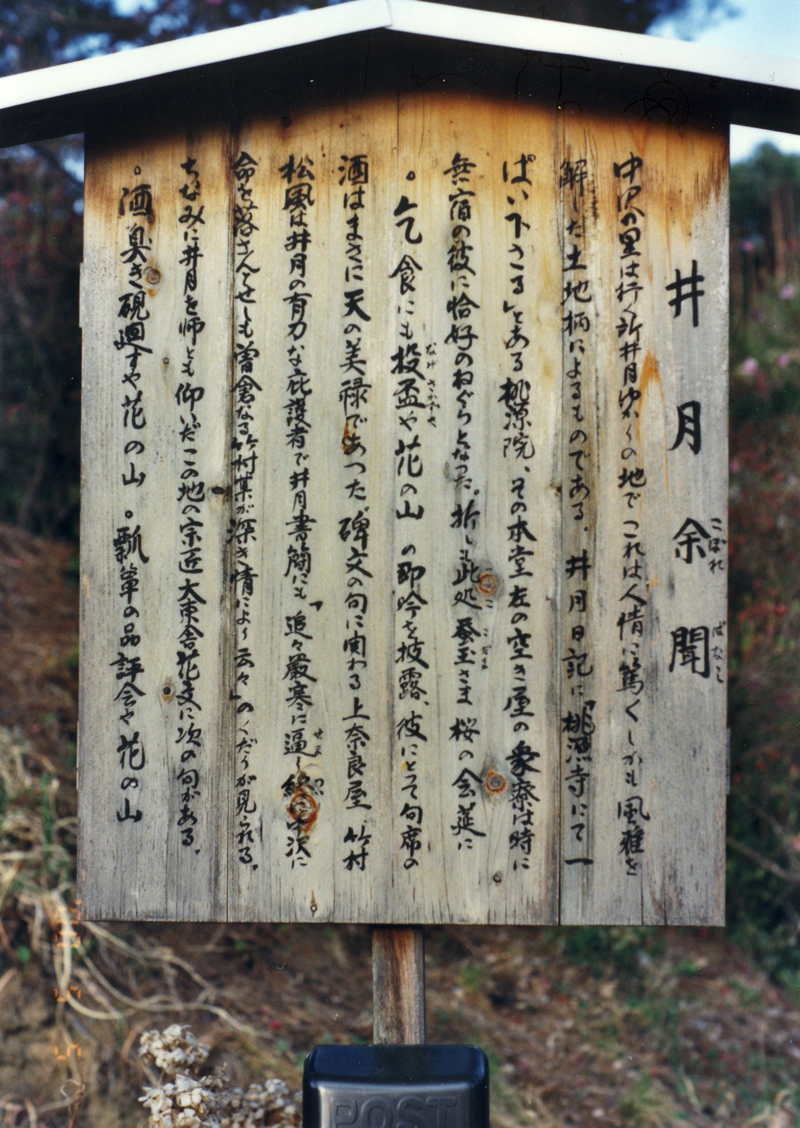 井月余聞
こぼれ
ばなし
中沢の里は行く所井月ゆかりの地でこれは人情に篤くしかも風雅を
解した土地柄によるものである。井月日記に「桃源寺にて一
ぱい下さる」とある桃源院、その本堂左の空き屋の衆寮は時に
無宿の彼に恰好のねぐらとなった。折しも此処蚕玉さま桜の会莚に
ここ
こだま
。乞食にも投盃や花の山の即吟を披露、彼にとって句席の
なげさかづき
酒はまさに天の美禄であつた。碑文の句に関わる上奈良屋 竹村
松風は井月の有力な庇護者で井月書簡にも「追々厳寒に逼り 中沢に
命を落さんとせしも曽倉なる竹村某が深き情により云々」のくだりが見られる。
ちなみに井月を師とも仰いだこの地の宗匠大束舎花文に次の句がある。
。酒臭き硯廻すや花の山 。瓢箪の品評会や花の山
POST